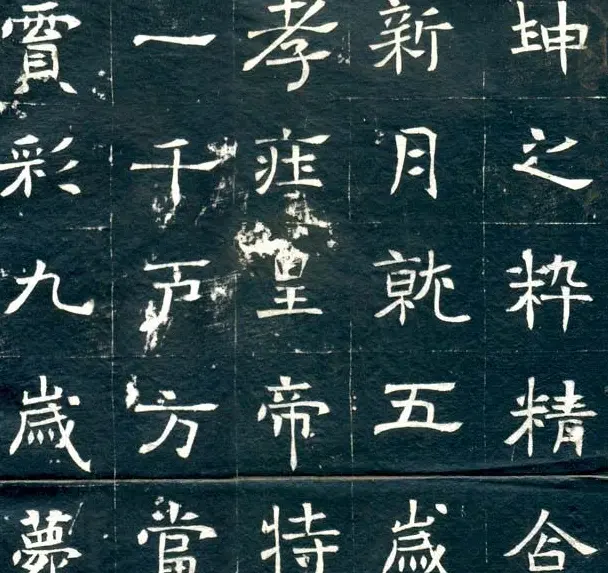 坤之粋精合
新月就五歲
孝莊皇帝特
一千戸方當
霣彩九歲夢